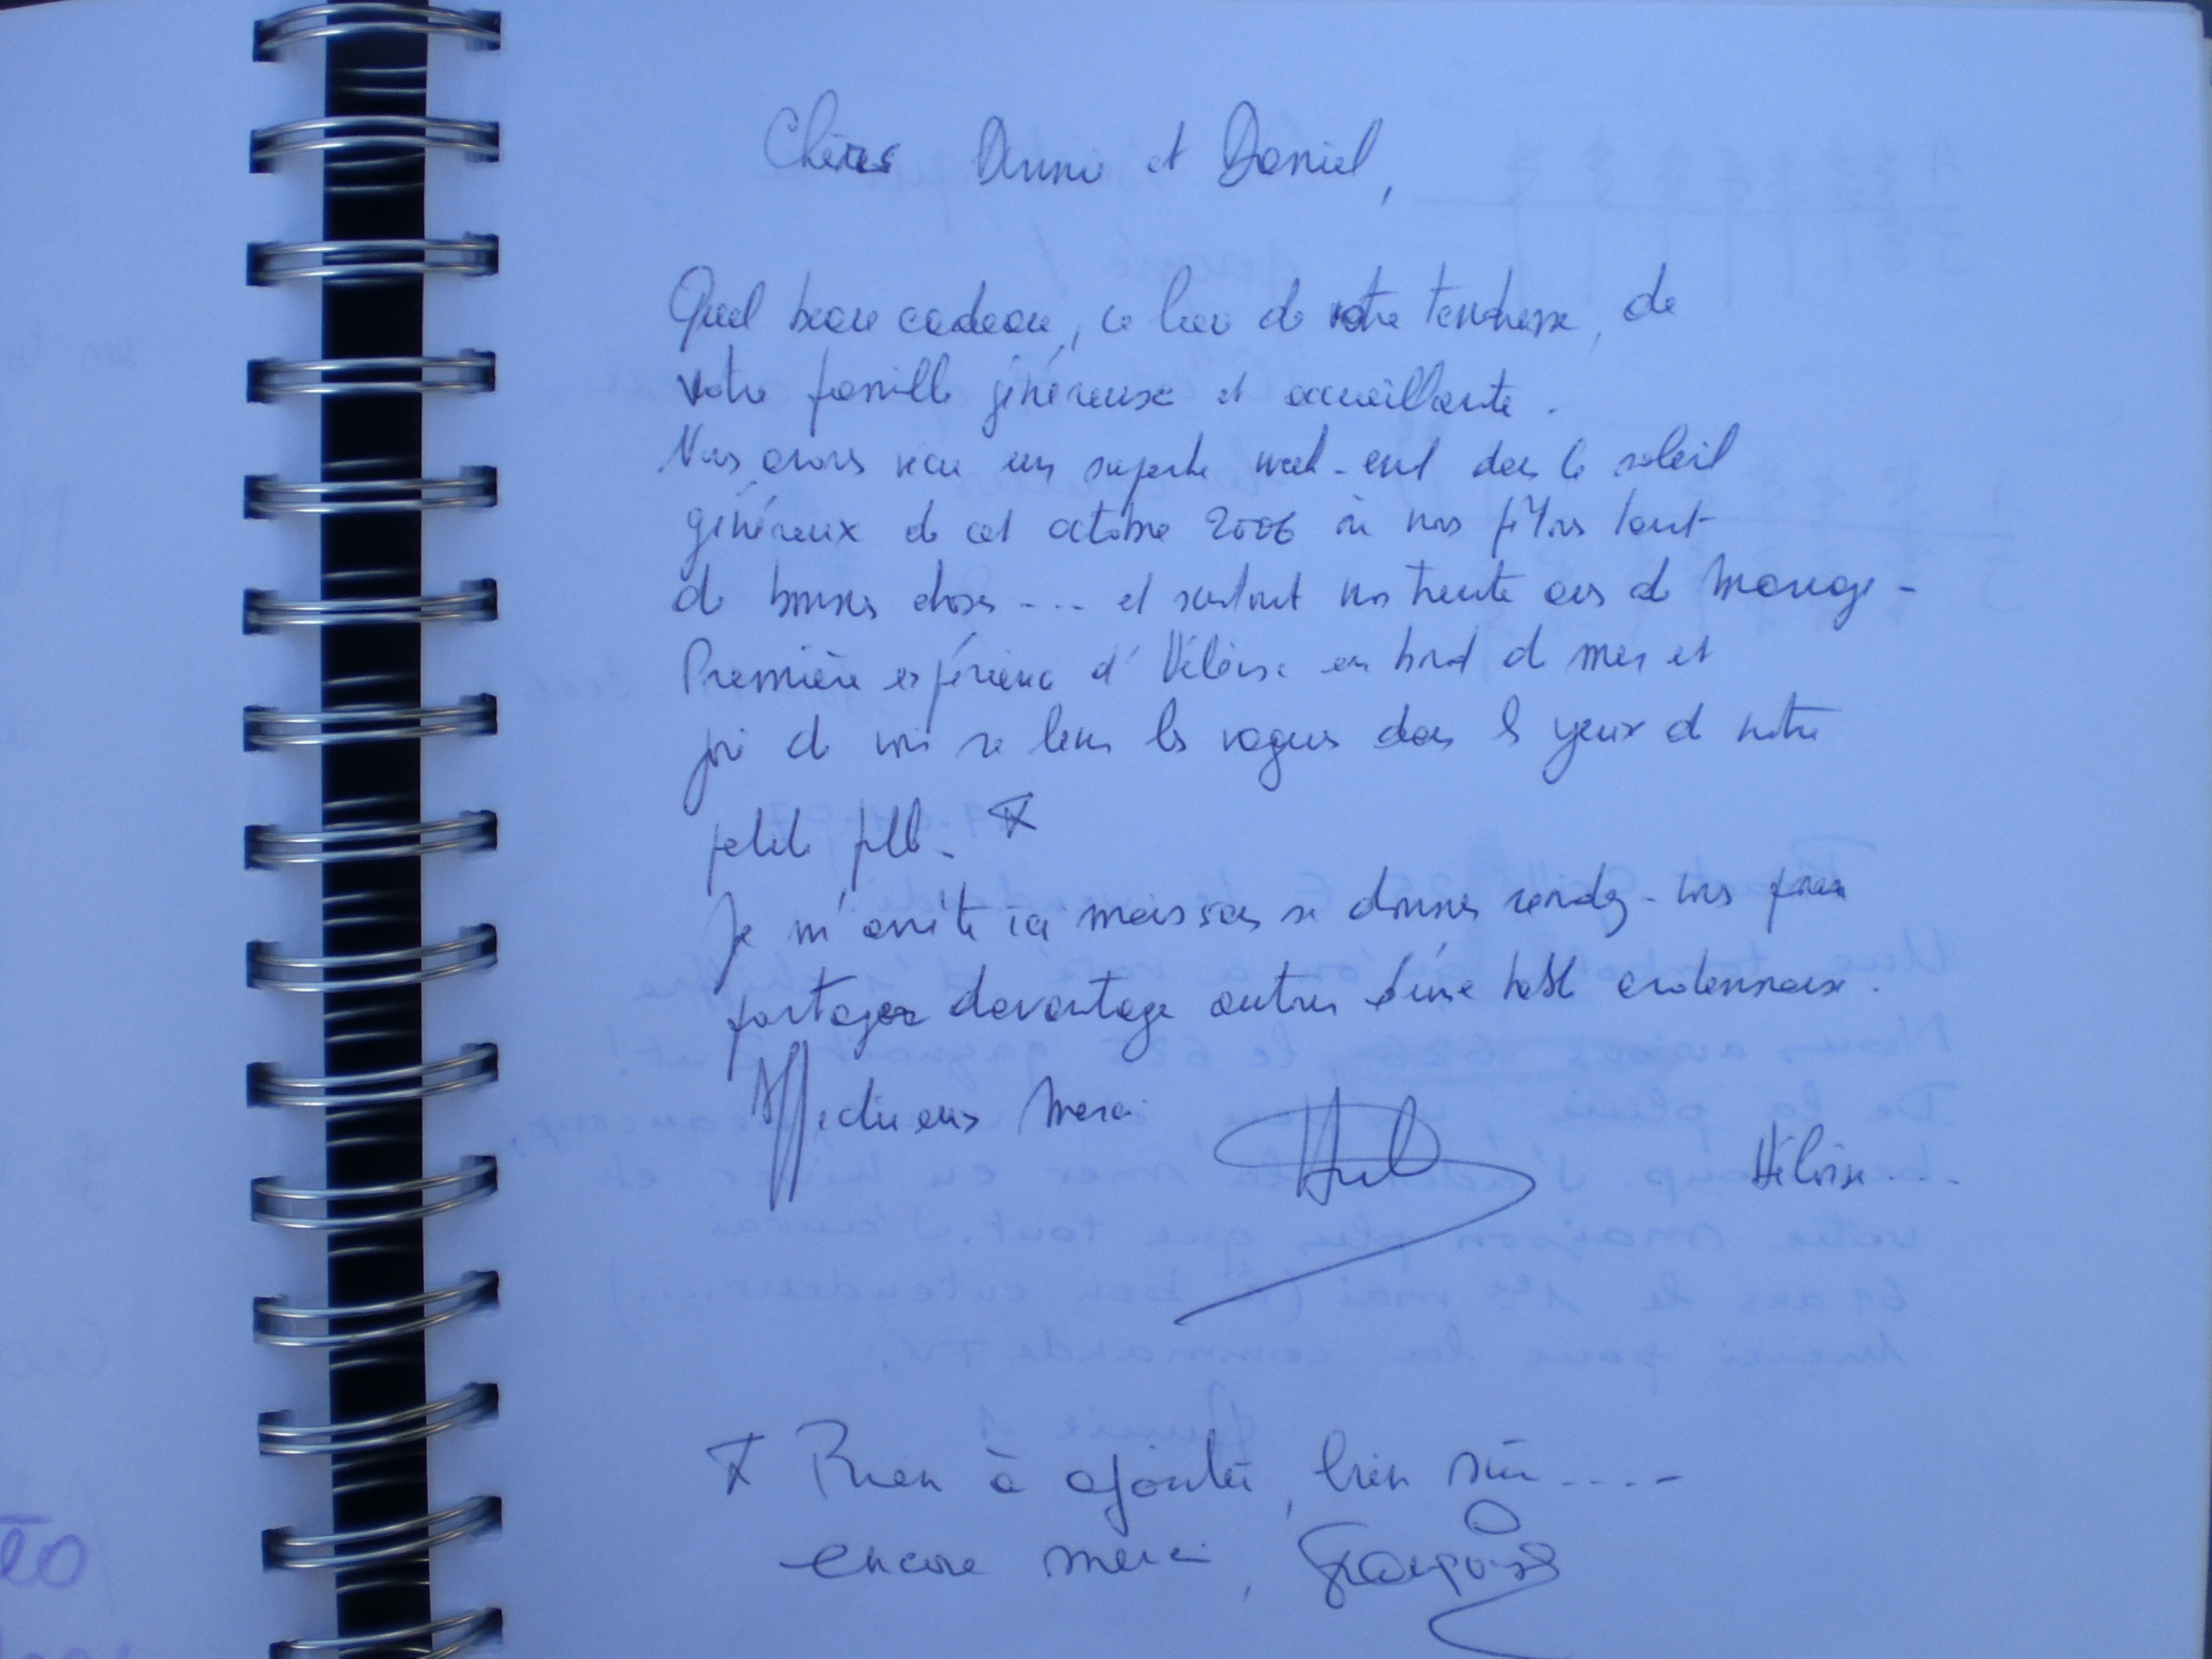 Chères Anne et Daniel,
Quel beau cadeau, ce lieu de votre tendresse, de
votre famille généreuse et accueillante.
Nous avons vécu un superbe week-end dans le soleil
généreux de cet octobre 2006 où nous fêtions tant
de bonnes choses .... et surtout nos trente ans de mariage -
Première expérience d'Héloïse en bord de mer et
joie de voir se lever les vagues dans les yeux de notre
petite fille.
Je m'arrête ici mais sans se donner rendez-vous pour
partager davantage autour d'une table ardennaise.
Affectueux Merci
Héloïse...
Rien à ajouter, bien sûr.....
encore merci, Françoise